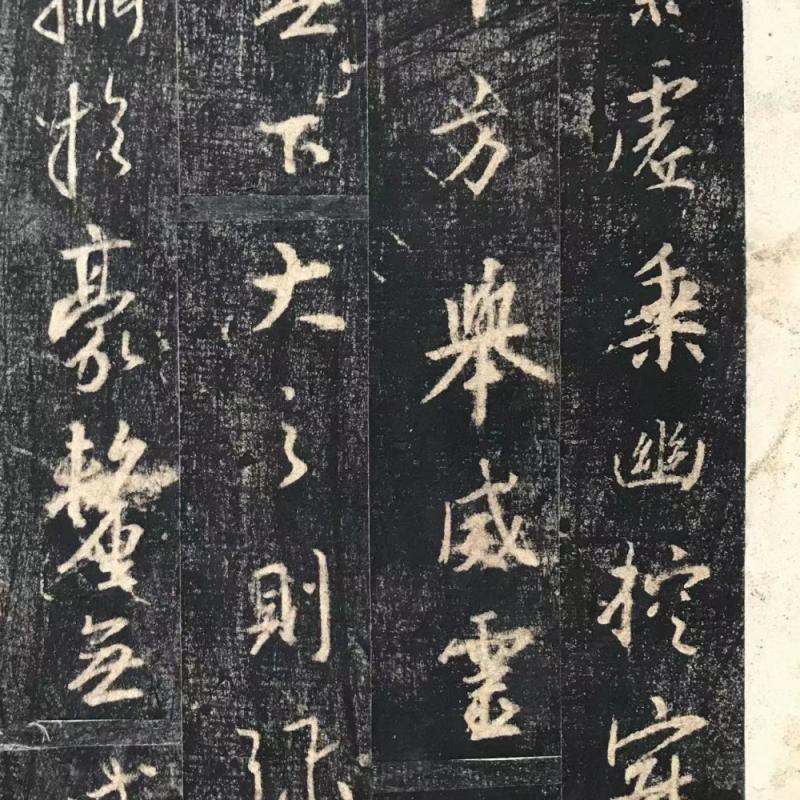 虛乘幽控寂
方舉威靈
無下大之則彌
攝於豪釐無